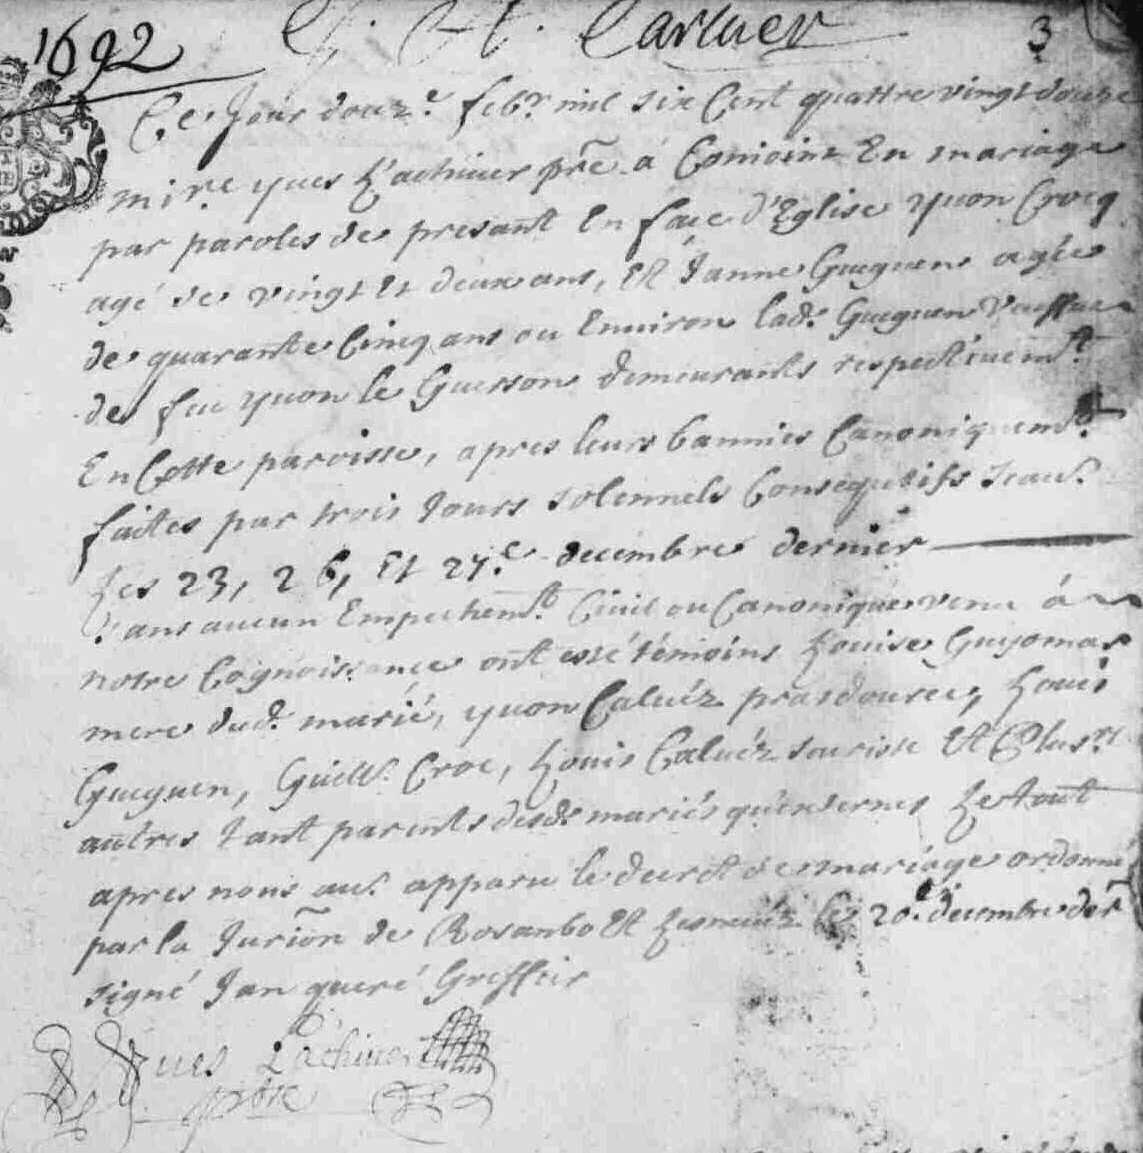 1692 Carluer 3
Ce Jour douz.e feb.r mil six Cent quattre vingt douze
mi.re yves L'achiuer p̃re à Conioint En mariage
par paroles de presant En face d'Eglise yuon Crocq
agé de vingt Et deux ans, Et Janne Gueguen agée
de quarante Cinq ans ou Enuiron lad. Gueguen Veuffue
de feu yuon le Guersson demeurants respectiuem.t
En Cette paroisse, apres leurs bannies Canoniquem.t
faites par trois Jours solennels Consequtifs scau.
Les 23, 26, Et 27.e decembre dernier
sans aucun Empechem.t Ciuil ou Canonique venu à
notre Cognoissance ont esté témoins Louise Guyomar
mere dud. marié, yuon Caluéz prasdouree, Louis
Gueguen, Guill. Croc, Louis Caluéz saurisse Et Plus.rs
autres tant parents desd. mariés qu'externes Le tout
apres nous au. apparu le decret de mariage ordonné
par la Jurion̄ de Rosanbo Et Lesneuéz le 20.e decembre der
signé Jan queré Greffeir
Yues Lachiuer
p̃bre